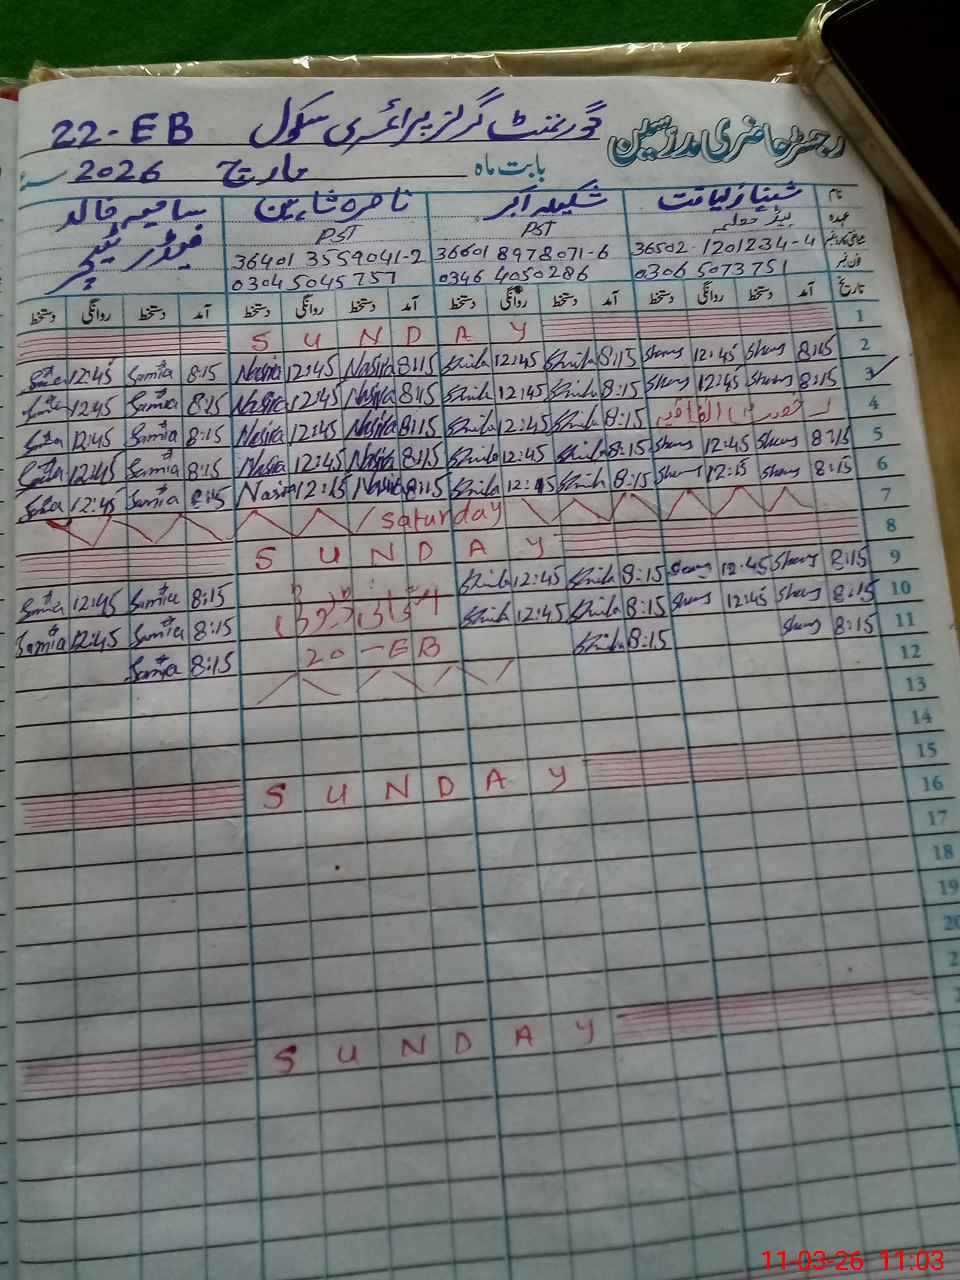 رجسٹر حاضری مدرسین گورنمنٹ گرلز پرائمری سکول 22-EB
بابت ماہ مارچ 2026 سنہ
نام شہناز لیاقت شکیلہ اکبر ناصرہ شاہین سامیہ خالد
عہدہ ہیڈ معلمہ PST PST فیڈر ٹیچر
36502-1201234-4 36601 8978071-6 36401 3559041-2
فون نمبر 0306 5073751 0346 4050286 0304 5045757
تاریخ آمد دستخط روانگی دستخط آمد دستخط روانگی دستخط آمد دستخط روانگی دستخط آمد دستخط روانگی دستخط
1 SUNDAY
2 8:15 Sheng 12:45 Sheng 8:15 Shkila 12:45 Shkila 8:15 Nasira 12:45 Nasira 8:15 Samia 12:45
3 8:15 Sheng 12:45 Sheng 8:15 Shkila 12:45 Shkila 8:15 Nasira 12:45 Nasira 8:15 Samia 12:45
4 8:15 Shkila 12:45 Shkila 8:15 Nasira 12:45 Nasira 8:15 Samia 12:45
5 8:15 Sheng 12:45 Sheng 8:15 Shkila 12:45 Shkila 8:15 Nasira 12:45 Nasira 8:15 Samia 12:45
6 8:15 Sheng 12:15 Sheng 8:15 Shkila 12:15 Shkila 8:15 Nasira 12:15 Nasira 8:15 Samia 12:45
7 Saturday
8 SUNDAY
9 8:15 Sheng 12:45 Sheng 8:15 Shkila 12:45 Shkila 8:15 Samia 12:45 Samia
10 8:15 Sheng 12:45 Sheng 8:15 Shkila 12:45 Shkila 8:15 Samia 12:45 Samia
11 8:15 Sheng 8:15 Shkila 20-EB 8:15 Samia
12
13
14
15 SUNDAY
16
17
18
19
20
2
SUNDAY
11-03-26 11:03